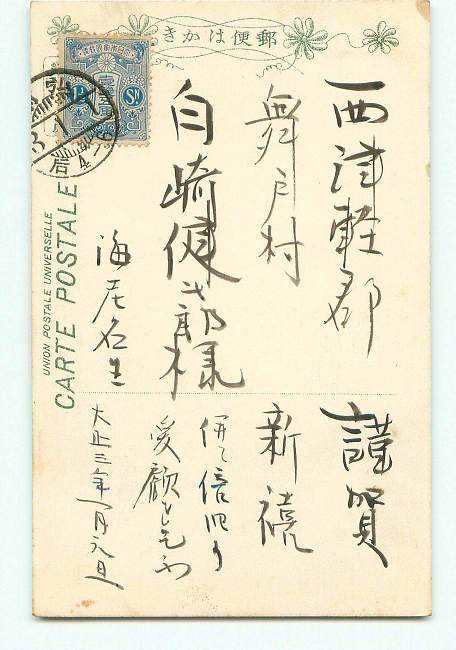 郵便はかき
UNION POSTALE UNIVERSELLE
CARTE POSTALE
西津軽郡
舞戸村
白崎健次郎様
海老名生
謹賀
新禧
併て倍旧ノ
愛顧を乞ふ
大正三年一月元旦